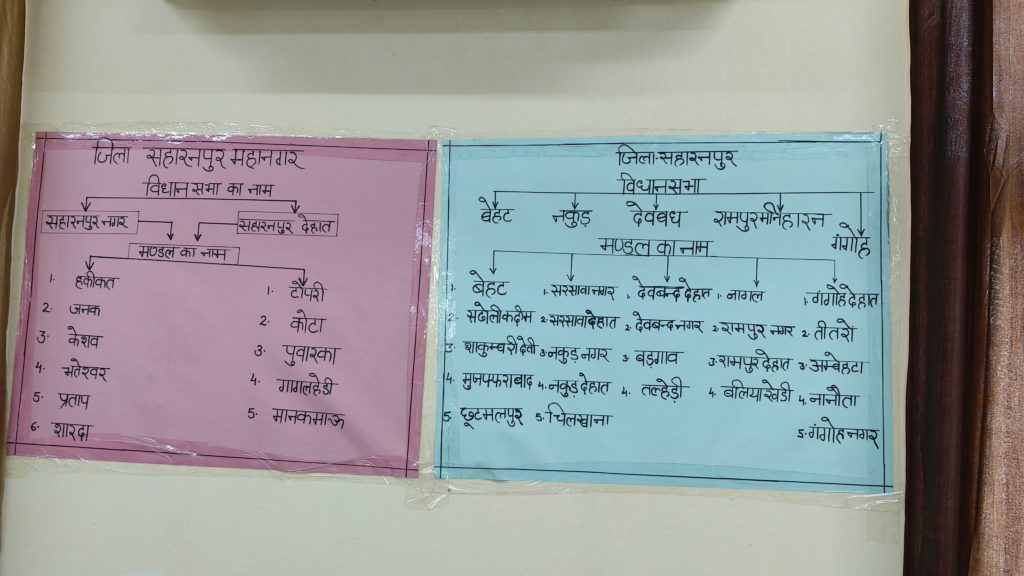 जिला सहारनपुर महानगर
विधान सभा का नाम
सहारनपुर नगर सहारनपुर देहात
मण्डल का नाम
1. हकीकत 1. टौपरी
2. जनक 2. कोटा
3. केशव 3. पुवारका
4. भतेश्वर 4. गागलहेडी
5. प्रताप 5. मानकमाऊ
6. शारदा
जिला-सहारनपुर
विधानसभा
बेहट नकुड़ देवबध रामपुरमनिहारन गंगोह
मण्डल का नाम
1. बेहट 1. सरसावा नगर 1. देवबन्द देहात 1. नागल 1. गंगोह देहात
2. सढोलीकदीम 2. सरसावा देहात 2. देवबन्द नगर 2. रामपुर नगर 2. तीतरो
3. शाकुम्बरी देवी 3. नकुड़ नगर 3. बड़गाव 3. रामपुर देहात 3. अम्बेहटा
4. मुजफ्फराबाद 4. नकुड़ देहात 4. तल्हेड़ी 4. बलियाखेडी 4. नानौता
5. छूटमलपुर 5. चिलखाना 5. गंगोह नगर